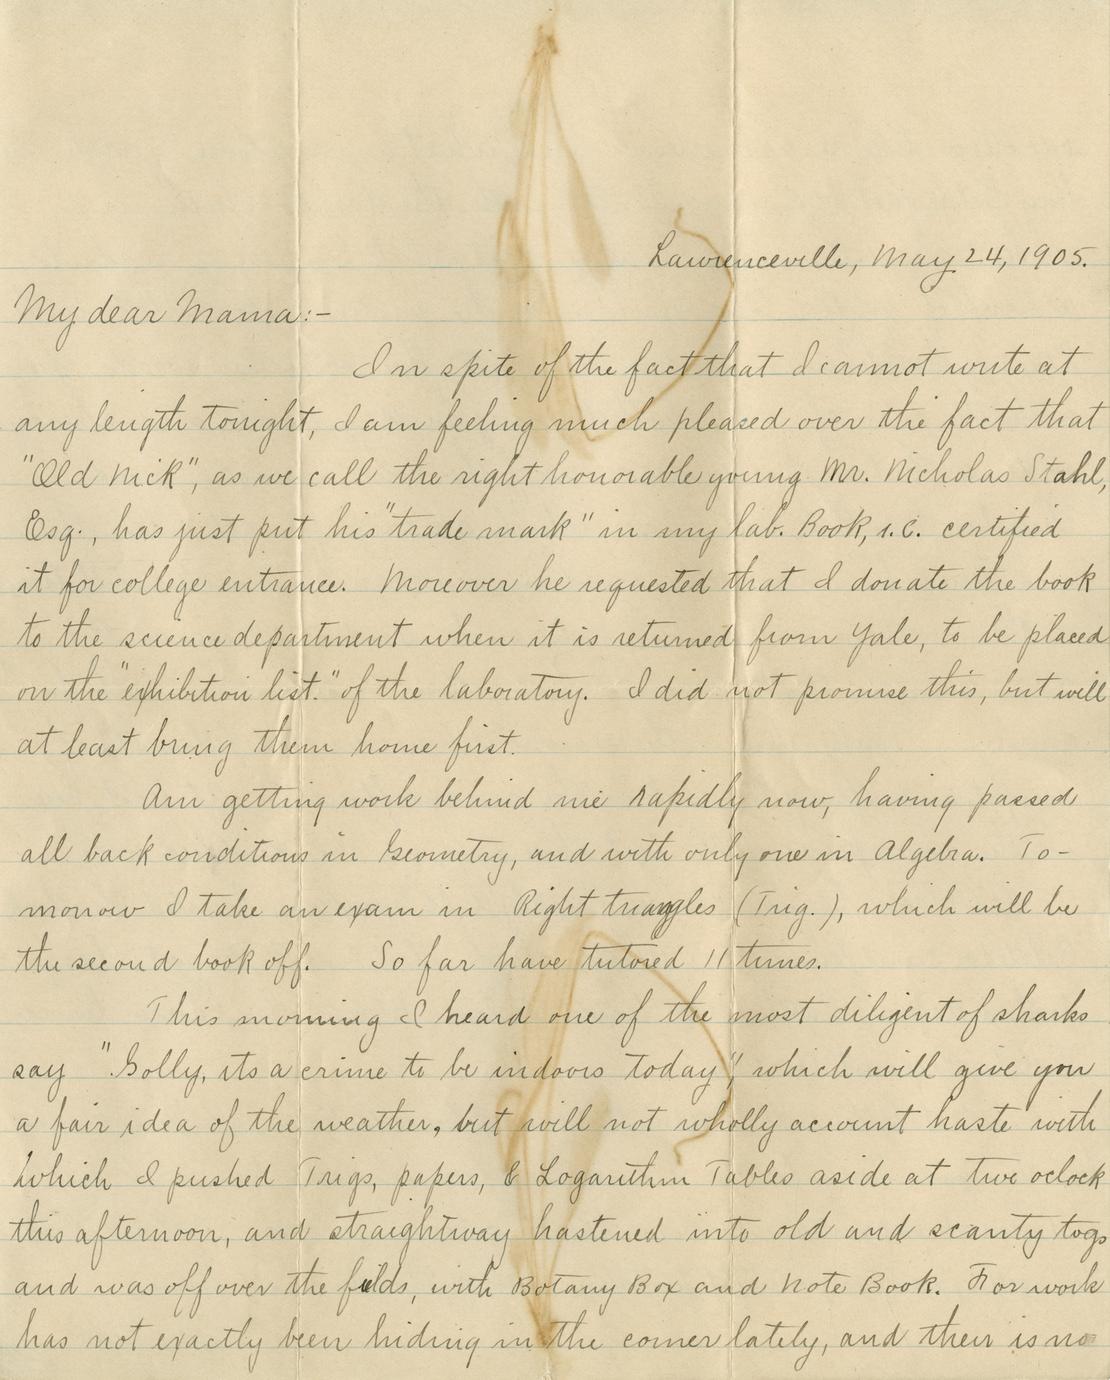 Lawrenceville, May 24, 1905.
My dear Mama:-
In spite of the fact that I cannot write at
any length tonight, I am feeling much pleased over the fact that
"Old Nick", as we call the right honorable young Mr. Nicholas Stahl,
Esq., has just put his "trade mark" in my lab. Book, i.e. certified
it for college entrance. Moreover he requested that I donate the book
to the science department when it is returned from Yale, to be placed
on the "exhibition list." of the laboratory. I did not promise this, but will
at least bring them home first.
Am getting work behind me rapidly now, having passed
all back conditions in Geometry, and with only one in Algebra. To-
morrow I take an exam in Right triangles (Trig.), which will be
the second book off. So far have tutored 11 times.
This morning I heard one of the most diligent of sharks
say "Golly, its a crime to be indoors today", which will give you
a fair idea of the weather, but will not wholly account haste with
which I pushed Trigs, papers, & Logarithm Tables aside at two oclock
this afternoon, and straightway hastened into old and scanty togs
and was off over the fields, with Botany Box and Note Book. For work
has not exactly been hiding in the corner lately, and their is no